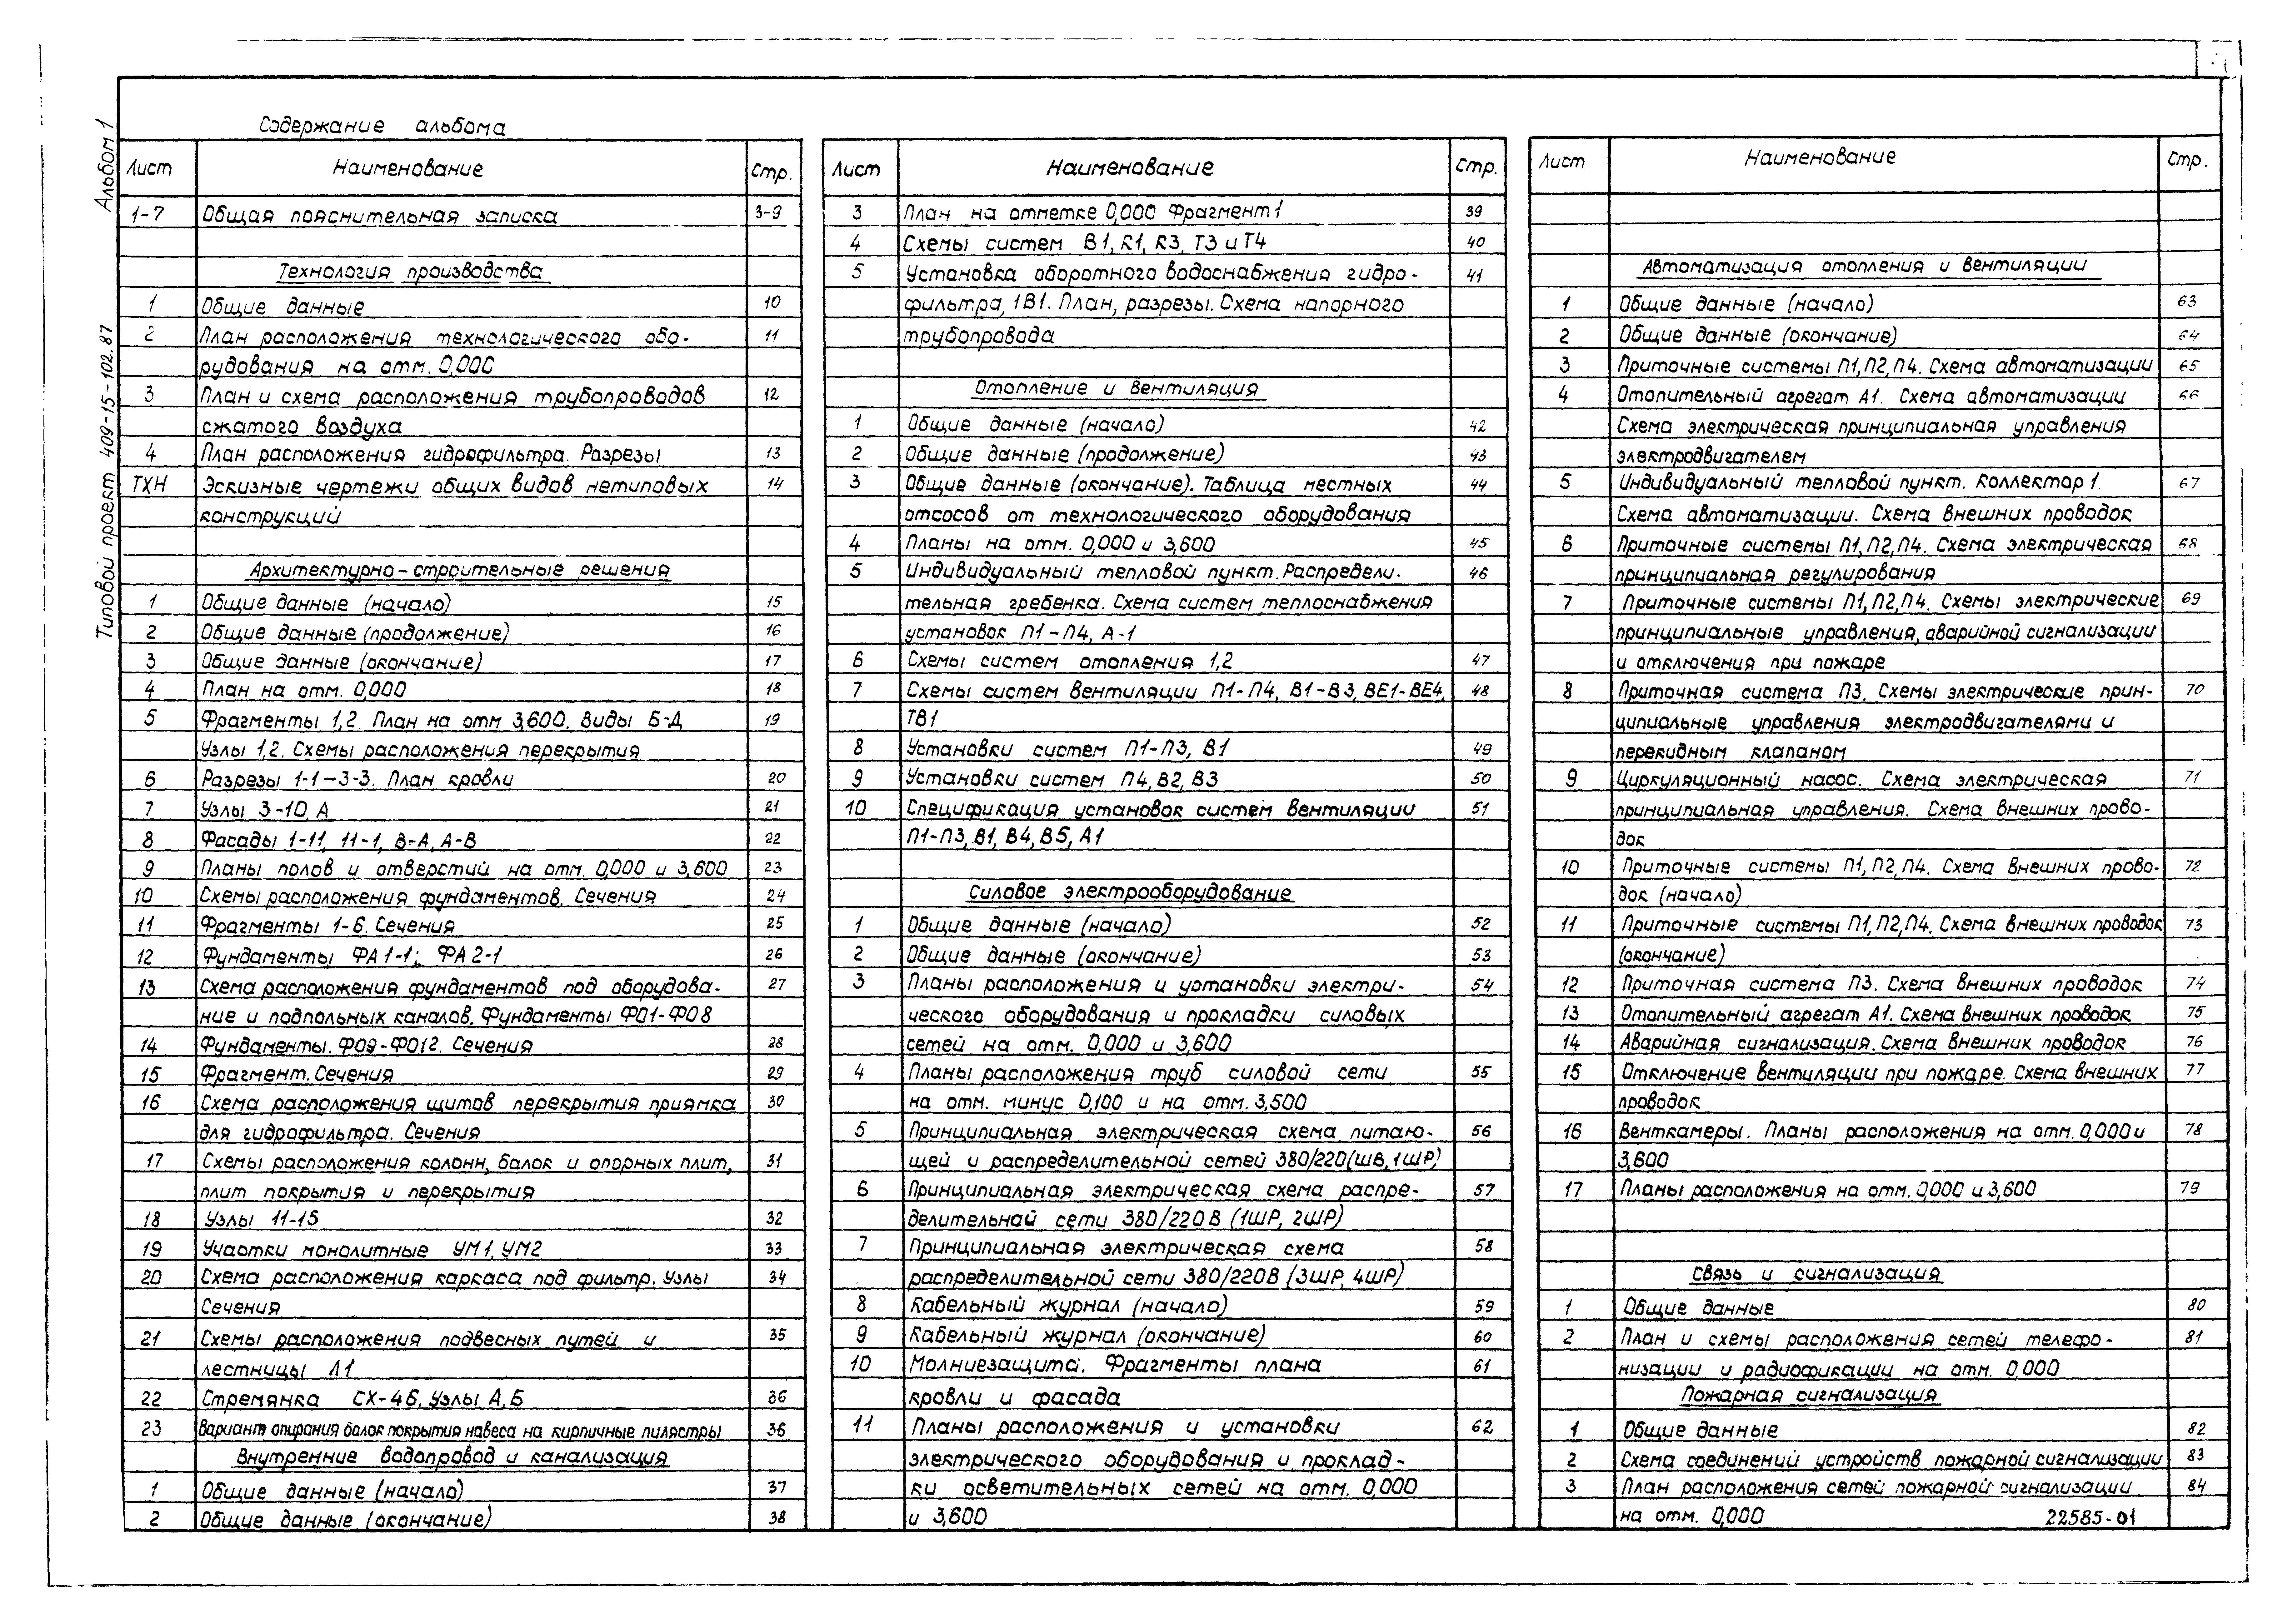 Альбом 1
Типовой проект 409-15-102.87
Содержание альбома
Лист Наименование Стр.
1-7 Общая пояснительная записка 3-9
Технология производства
1 Общие данные 10
2 План расположения технологического обо- 11
рудования на отм. 0,000
3 План и схема расположения трубопроводов 12
сжатого воздуха
4 План расположения гидрофильтра. Разрезы 13
ТХН Эскизные чертежи общих видов нетиповых 14
конструкций
Архитектурно-строительные решения
1 Общие данные (начало) 15
2 Общие данные (продолжение) 16
3 Общие данные (окончание) 17
4 План на отм. 0,000 18
5 Фрагменты 1,2. План на отм 3,600. Виды Б-Д 19
Узлы 1,2. Схемы расположения перекрытия
6 Разрезы 1-1-3-3. План кровли 20
7 Узлы 3-10, А 21
8 Фасады 1-11, 11-1, В-А, А-В 22
9 Планы полов и отверстий на отм. 0,000 и 3,600 23
10 Схемы расположения фундаментов. Сечения 24
11 Фрагменты 1-6. Сечения 25
12 Фундаменты ФА1-1; ФА2-1 26
13 Схема расположения фундаментов под оборудова- 27
ние и подпольных каналов. Фундаменты ФО1-ФО8
14 Фундаменты. ФО9-ФО12. Сечения 28
15 Фрагмент. Сечения 29
16 Схема расположения щитов перекрытия приямка 30
для гидрофильтра. Сечения
17 Схемы расположения колонн, балок и опорных плит, 31
плит покрытия и перекрытия
18 Узлы 11-15 32
19 Участки монолитные УМ1, УМ2 33
20 Схема расположения каркаса под фильтр. Узлы 34
Сечения
21 Схемы расположения подвесных путей и 35
лестницы Л1
22 Стремянка СХ-46. Узлы А, Б 36
23 Вариант опирания балок покрытия навеса на кирпичные пилястры 36
Внутренние водопровод и канализация
1 Общие данные (начало) 37
2 Общие данные (окончание) 38
Лист Наименование Стр.
3 План на отметке 0,000 Фрагмент 1 39
4 Схемы систем В1, К1, К3, Т3 и Т4 40
5 Установка оборотного водоснабжения гидро- 41
фильтра, 1В1. План, разрезы. Схема напорного
трубопровода
Отопление и вентиляция
1 Общие данные (начало) 42
2 Общие данные (продолжение) 43
3 Общие данные (окончание). Таблица местных 44
отсосов от технологического оборудования
4 Планы на отм. 0,000 и 3,600 45
5 Индивидуальный тепловой пункт. Распредели- 46
тельная гребенка. Схема систем теплоснабжения
установок П1-П4, А-1
6 Схемы систем отопления 1,2 47
7 Схемы систем вентиляции П1-П4, В1-В3, ВЕ1-ВЕ4, 48
ТВ1
8 Установки систем П1-П3, В1 49
9 Установки систем П4, В2, В3 50
10 Спецификация установок систем вентиляции 51
П1-П3, В1, В4, В5, А1
Силовое электрооборудование
1 Общие данные (начало) 52
2 Общие данные (окончание) 53
3 Планы расположения и установки электри- 54
ческого оборудования и прокладки силовых
сетей на отм. 0,000 и 3,600
4 Планы расположения труб силовой сети 55
на отм. минус 0,100 и на отм. 3,500
5 Принципиальная электрическая схема питаю- 56
щей и распределительной сетей 380/220 (ШВ, 1ШР)
6 Принципиальная электрическая схема распре- 57
делительнай сети 380/220 В (1ШР, 2ШР)
7 Принципиальная электрическая схема 58
распределительной сети 380/220В (3ШР, 4ШР)
8 Кабельный журнал (начало) 59
9 Кабельный журнал (окончание) 60
10 Молниезащита. Фрагменты плана 61
кровли и фасада
11 Планы расположения и установки 62
электрического оборудования и проклад-
ки осветительных сетей на отм. 0,000
и 3,600
Лист Наименование Стр.
Автоматизация отопления и вентиляции
1 Общие данные (начало) 63
2 Общие данные (окончание) 64
3 Приточные системы П1, П2, П4. Схема автоматизации 65
4 Отопительный агрегат А1. Схема автоматизации 66
Схема электрическая принципиальная управления
электродвигателем
5 Индивидуальный тепловой пункт. Коллектор 1. 67
Схема автоматизации. Схема внешних проводок
6 Приточные системы П1, П2, П4. Схема электрическая 68
принципиальная регулирования
7 Приточные системы П1, П2, П4. Схемы электрические 69
принципиальные управления, аварийной сигнализации
и отключения при пожаре
8 Приточная система П3. Схемы электрические прин- 70
ципиальные управления электродвигателями и
перекидным клапаном
9 Циркуляционный насос. Схема электрическая 71
принципиальная управления. Схема внешних прово-
док
10 Приточные системы П1, П2, П4. Схема внешних прово- 72
док (начало)
11 Приточные системы П1, П2, П4. Схема внешних проводок 73
(окончание)
12 Приточная система П3. Схема внешних проводок 74
13 Отопительный агрегат А1. Схема внешних проводок 75
14 Аварийная сигнализация. Схема внешних проводок 76
15 Отключение вентиляции при пожаре. Схема внешних 77
проводок
16 Венткамеры. Планы расположения на отм. 0,000 и 78
3,600
17 Планы расположения на отм. 0,000 и 3,600 79
Связь и сигнализация
1 Общие данные 80
2 План и схемы расположения сетей телефо- 81
низации и радиофикации на отм. 0,000
Пожарная сигнализация
1 Общие данные 82
2 Схема соединений устройств пожарной сигнализации 83
3 План расположения сетей пожарной сигнализации 84
на отм. 0,000
22585-01